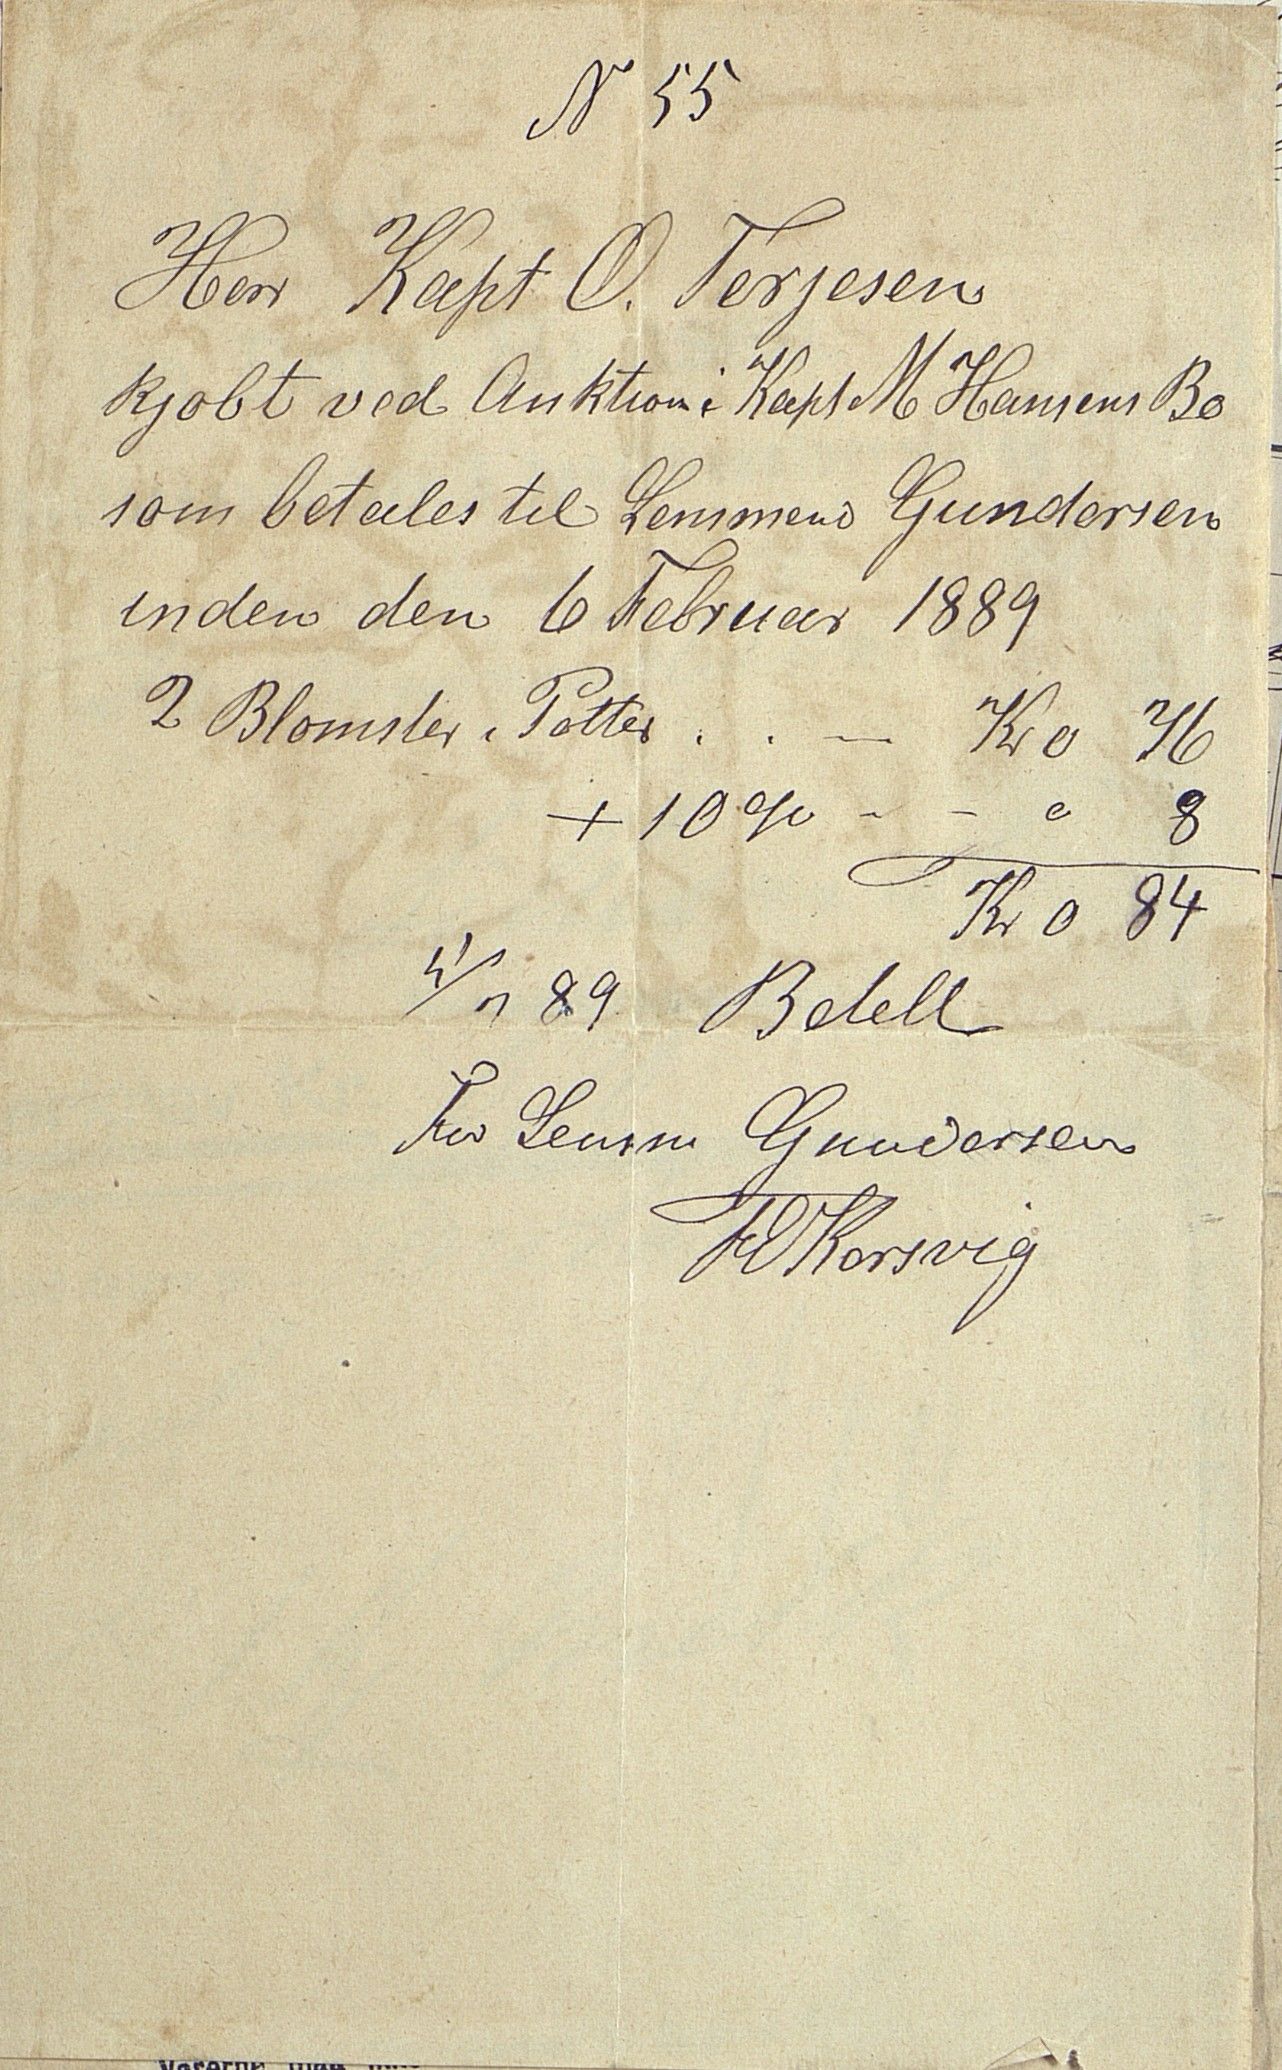 N 55
Herr Kapt O. Terjesen
kjobt ved Auktion i Kapt M Hansens Bo
som betales til Lensmend Gundersen
inden den 6 Februar 1889
2 Blomster i Potter . . — Kr 0 76
+ 10 % - - 0 8
Kr 0 84
4/7 89 Betelt
For Lensm Gundersen
Korsvig